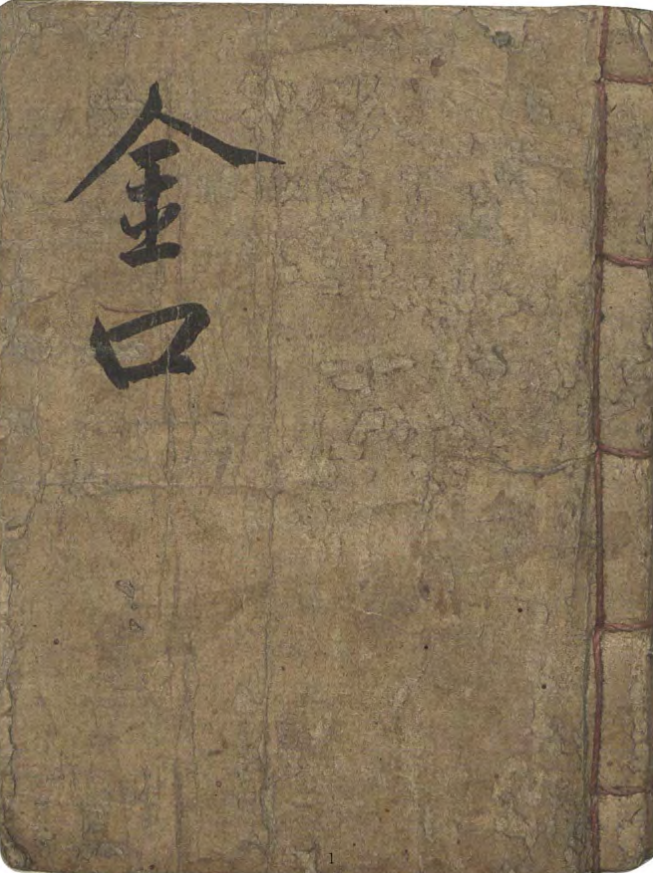 金口
1